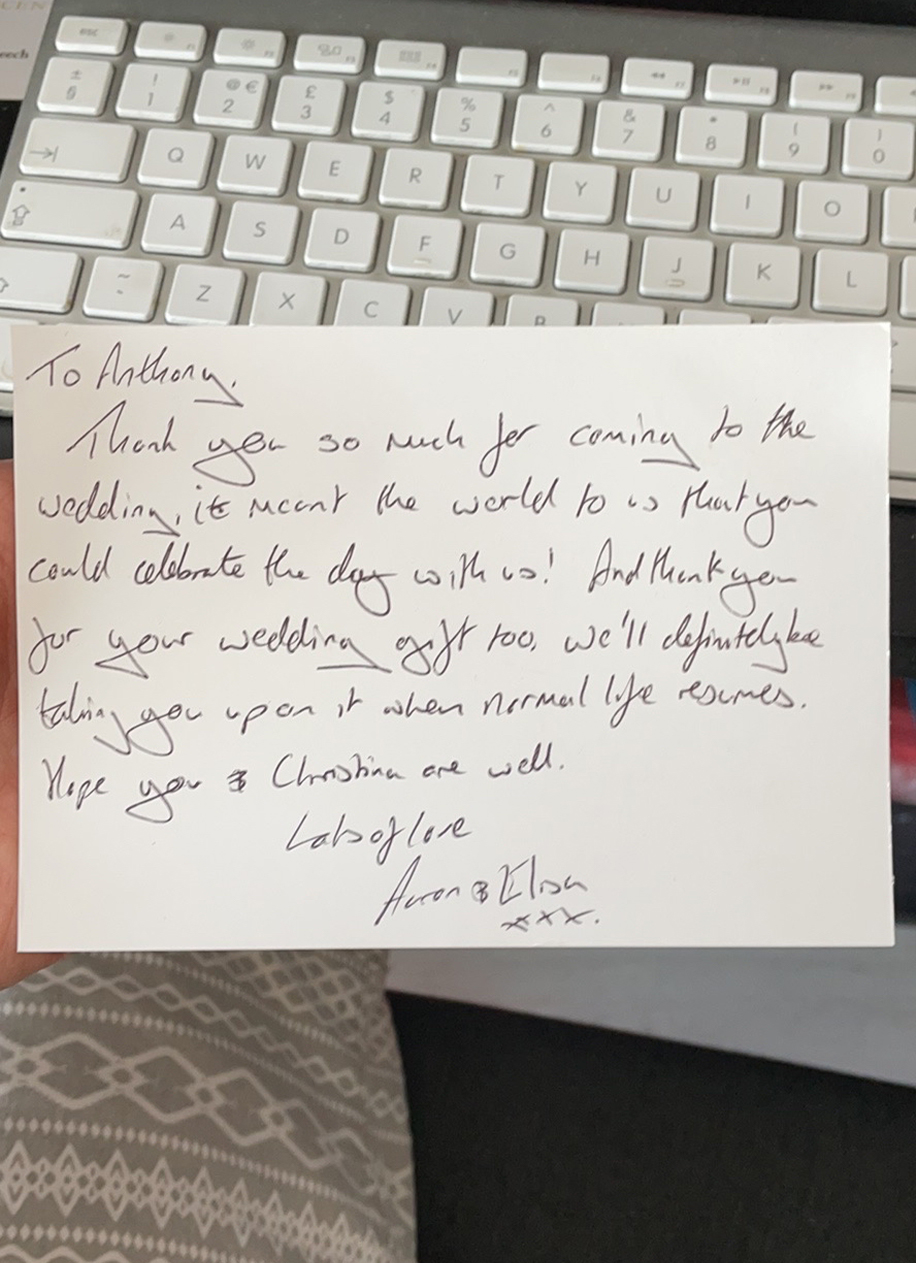 CEN
eech
esc F1 F2 F3 F4 F5 F6 F7 F8 F9
± § ! 1 @ € 2 £ 3 $ 4 % 5 ^ 6 & 7 * 8 ( 9 ) 0
Q W E R T Y U I O
A S D F G H J K L
~ ` Z X C V B
To Anthony,
Thank you so much for coming to the
wedding, it meant the world to us that you
could celebrate the day with us! And thank you
for your wedding gift too, we'll definitely be
taking you up on it when normal life resumes.
Hope you & Christina are well.
Lots of love
Aaron & Elisa
xxx.